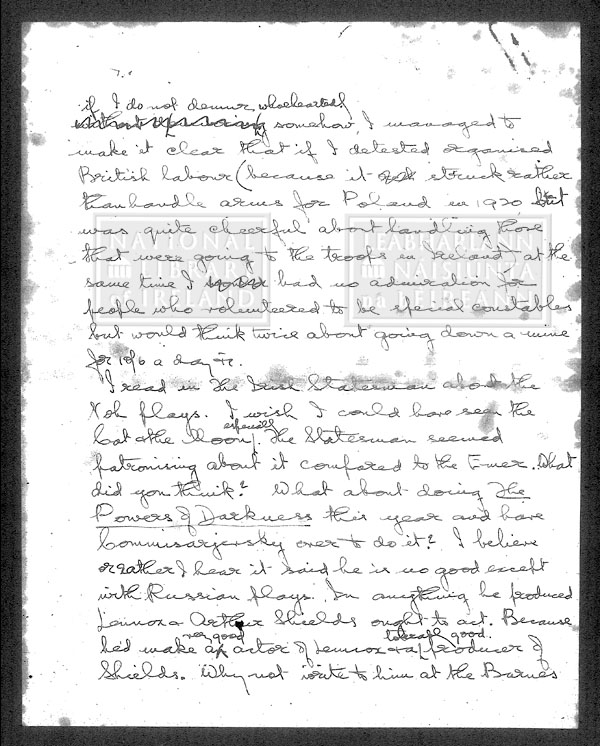 if I do not demur, wholehearted
somehow, I managed to
make it clear that if I detested organised
British labour (because it struck rather
than handle arms for Poland in 1920 but
was quite cheerful about handling those
that were going to the troops in Ireland) at the
same time I had no admiration for
people who volunteered to be special constables
but would think twice about going down a mine
for 10/6 a day
I read in The Irish Statesman about the
Noh plays. I wish I could have seen the
Cat & the Moon especially. The Statesman seemed
patronising about it compared to the Emer. What
did you think? What about doing The
Powers of Darkness this year and have
Commisarjevsky over to do it? I believe
or rather I hear it said he is no good except
with Russian plays. In anything he produced
Lennox & Arthur Shields ought to act. Because
he'd make a very good actor of Lennox & a tolerably good producer of
Shields. Why not write to him at the Barnes
NATIONAL LIBRARY OF IRELAND
LEABHARLANN NÁISIÚNTA NA hÉIREANN